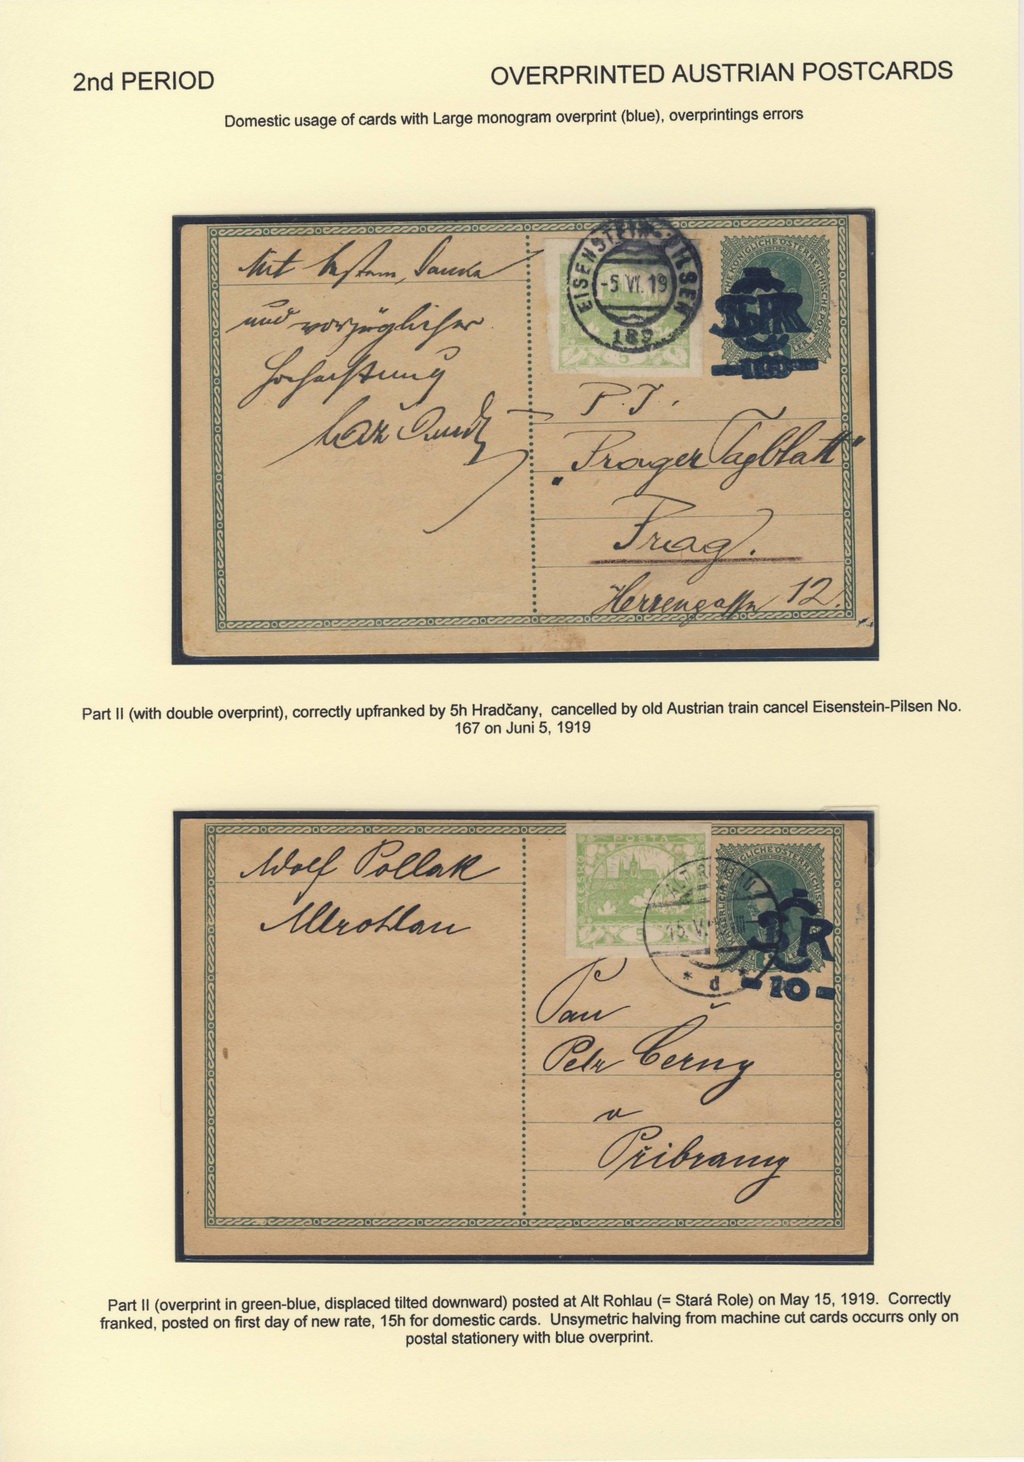 2nd PERIOD
OVERPRINTED AUSTRIAN POSTCARDS
Domestic usage of cards with Large monogram overprint (blue), overprintings errors
EISENSTEIN-PILSEN
-5 VI. 19
Mit bestem Danke
und vorzüglicher
Hochachtung
P. T.
„Prager Tagblatt"
Prag.
Herrengasse 12.
Part II (with double overprint), correctly upfranked by 5h Hradčany, cancelled by old Austrian train cancel Eisenstein-Pilsen No.
167 on Juni 5, 1919
POSTA
ČSR
-10-
* d
Adolf Pollak
Altrohlau
Pan
Petr Černy
v
Přibramy
Part II (overprint in green-blue, displaced tilted downward) posted at Alt Rohlau (= Stará Role) on May 15, 1919. Correctly
franked, posted on first day of new rate, 15h for domestic cards. Unsymetric halving from machine cut cards occurrs only on
postal stationery with blue overprint.